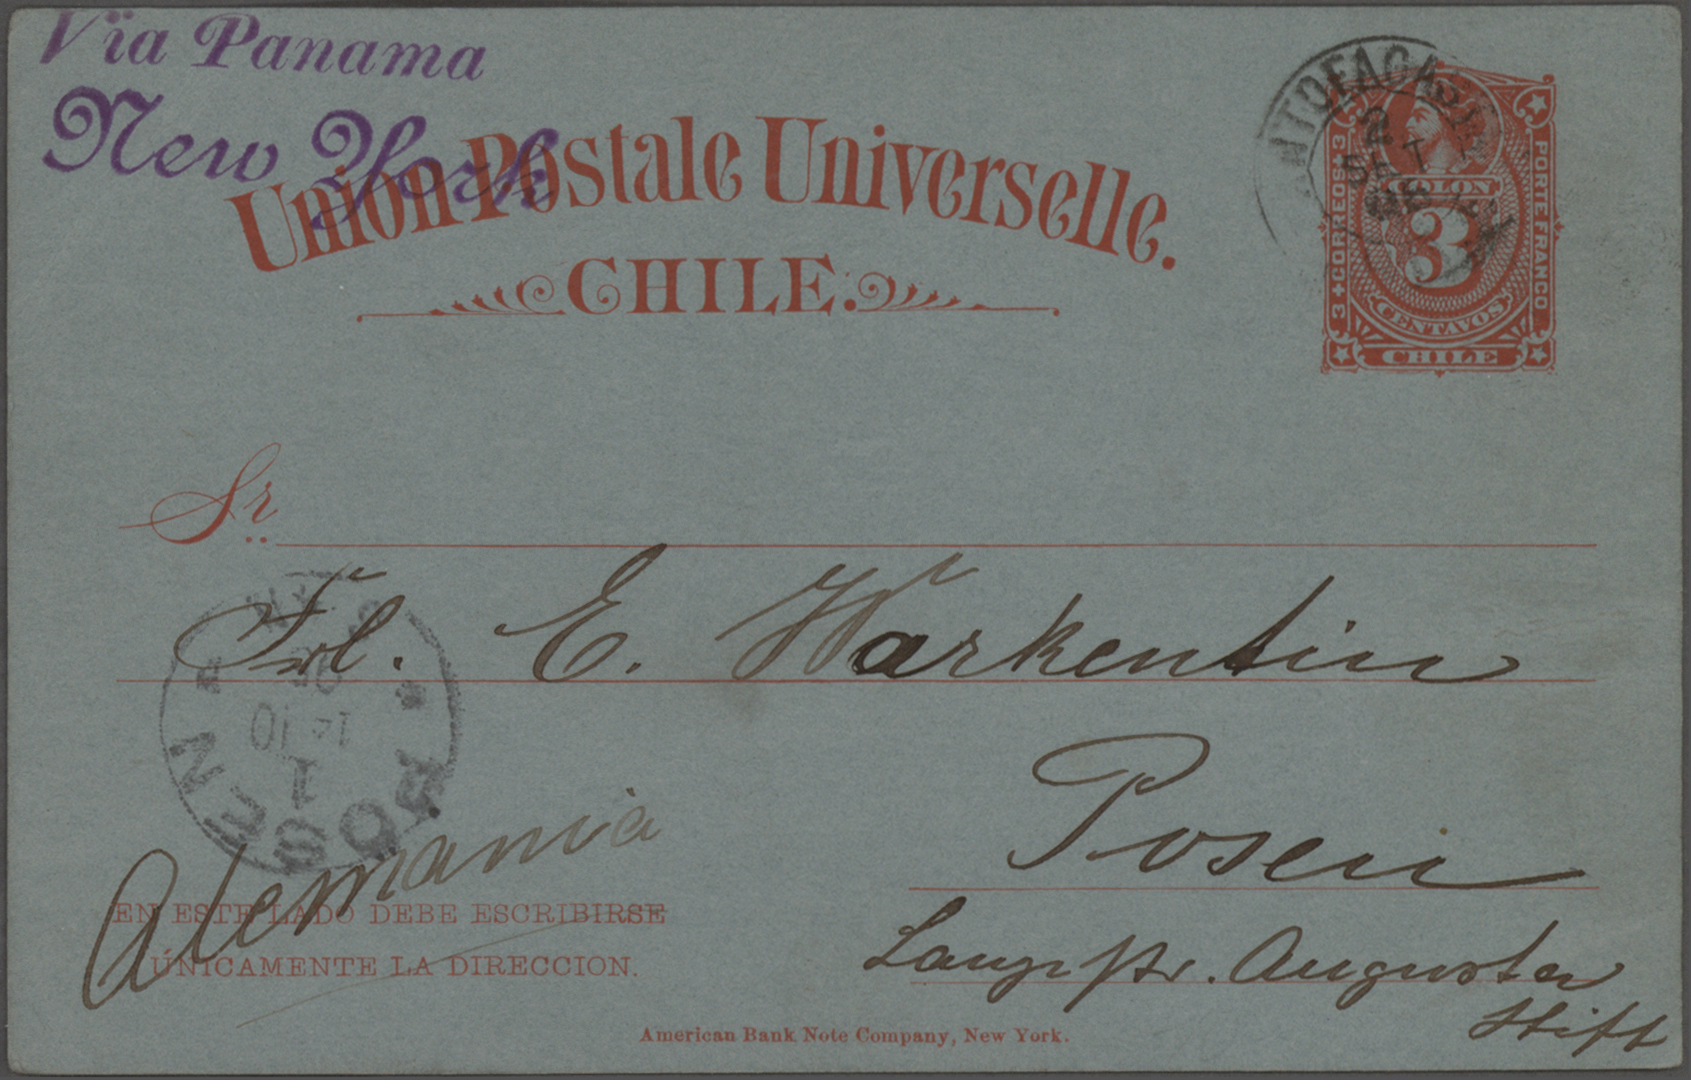 Vïa Panama
New York
Union Postale Universelle.
CHILE.
ANTOFAGA
2
SET
COLON
3
CENTAVOS
CHILE
3 CORREOS 3
PORTE FRANCO
Sr.
Frl. E. Warkentin
Posen
Alemania
POSEN
1
EN ESTE LADO DEBE ESCRIBIRSE
ÚNICAMENTE LA DIRECCION.
Augusta
Stift
American Bank Note Company, New York.